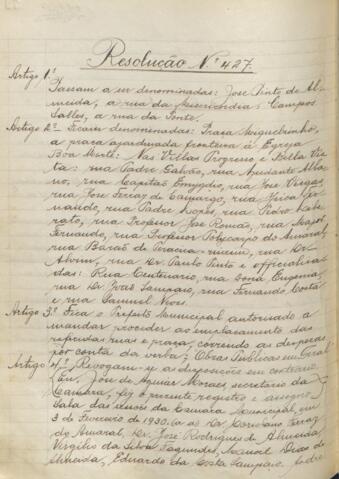 Resolução Nº 427.
Artigo 1º
Passam a ser denominadas: José Pinto de Al-
meida, a rua da Misericordia; Campos
Salles, a rua da Ponte.
Artigo 2º Ficam denominadas: Praça Miguelzinho,
a praça ajardinada fronteira á Egreja
Bôa Morte: Nas Villas Progresso e Bella Vis-
ta: rua Padre Galvão, rua Ajudante Alba-
no, rua Capitão Emygdio, rua José Vergas
rua José Ferraz de Camargo, rua Juca Fer-
nando, rua Padre Lopes, rua Pedro Libe-
rato, rua Professor José Romão, rua Major
Fernando, rua Professor Polycarpo do Amaral,
rua Barão de Piracia-mirim, rua Dr.
Alvim, rua Dr. Paulo Pinto e officialisa-
das: Rua Centenario, rua Dona Eugenia,
rua Dr. João Sampaio, rua Fernando Costa
e rua Samuel Neves.
Artigo 3º Fica o Prefeito Municipal autorisado a
mandar proceder ao emplacamento das
referidas ruas e praça, correndo as despesas
por conta da verba: Obras Publicas em Geral.
Artigo 4º Revogam-se as disposições em contrario.
Eu, José de Aguiar Moraes, secretario da
Camara, fiz o presente registro e assigno.
Sala das sessões da Camara Municipal, em
3 de Fevereiro de 1930. (a a) Dr. Coriolano Ferraz
do Amaral, Dr. José Rodrigues de Almeida,
Virgilio da Silva Fagundes, Samuel Dias de
Almeida, Eduardo da Costa Sampaio, Pedro